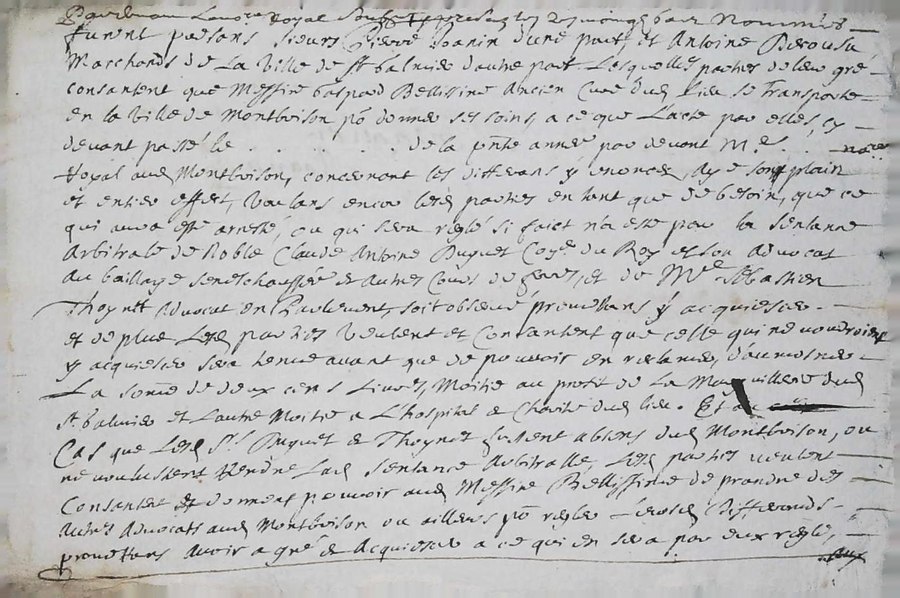 royal soubz présentes nommés
furent presans sieurs Pierre Ioanin d'une part, et Antoine Derousu
Marchands de La Ville de St balmier d'autre part. Lesquelles parties de leur gré
consantent que Messire Gaspard Bellissime Ancien Curé dud lieu se Transporte
en la Ville de Montbrison po donner ses soins, a ce que L'acte par elles cy
devant passé le . . . . . . . . de la pnte année par devant Me . . . . . no.re
Royal aud Montbrison, concernant les differans y enoncés, Aye son plain
et entier effect, Voulans encor lesd parties en tant que de besoin, que ce
qui aura esté arresté, ou qui sera reglé si faict n'a esté par la sentance
Arbitrale de Noble Claude Antoine Duguet Coner du Roy et son Advocat
Au bailliage senechaussée & Autres Cours de forets, et de Me Sébastien
Thoynet Advocat en Parlement, soit observé promettans y acquiescer.
et de plus Lesd parties veulent et Consantent que celle qui ne voudroient
y acquiescer sera tenue avant que de pouvoir en reclamer, d'aumosner
La some de deux cens Livres, Moitié au profit de La Marguillerie dud
St balmier et L'autre Moitié a L'hospital & Charité dud lieu. Et au
Cas que Lesd Srs Duguet & Thoynet fussent absens dud Montbrison, ou
ne voulussent Rendre Lad sentance Arbitralle, Lesd parties veulent
Consantent et donnent pouvoir aud Messire Bellissime de prandre des
Autres Advocats aud Montbrison ou ailleurs po regler Leursd differends
promettans Avoir a gré & Acquiescer a ce qui en sera par eux reglé,
aux